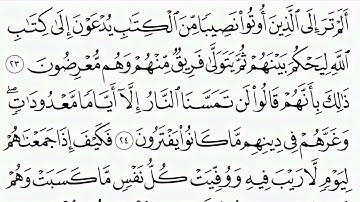 أَلَمْ تَرَ إِلَى ٱلَّذِينَ أُوتُوا۟ نَصِيبًا مِّنَ ٱلْكِتَٰبِ يُدْعَوْنَ إِلَىٰ كِتَٰبِ
ٱللَّهِ لِيَحْكُمَ بَيْنَهُمْ ثُمَّ يَتَوَلَّىٰ فَرِيقٌ مِّنْهُمْ وَهُم مُّعْرِضُونَ ٢٣
ذَٰلِكَ بِأَنَّهُمْ قَالُوا۟ لَن تَمَسَّنَا ٱلنَّارُ إِلَّآ أَيَّامًا مَّعْدُودَٰتٍ ۖ
وَغَرَّهُمْ فِى دِينِهِم مَّا كَانُوا۟ يَفْتَرُونَ ٢٤ فَكَيْفَ إِذَا جَمَعْنَٰهُمْ
لِيَوْمٍ لَّا رَيْبَ فِيهِ وَوُفِّيَتْ كُلُّ نَفْسٍ مَّا كَسَبَتْ وَهُمْ